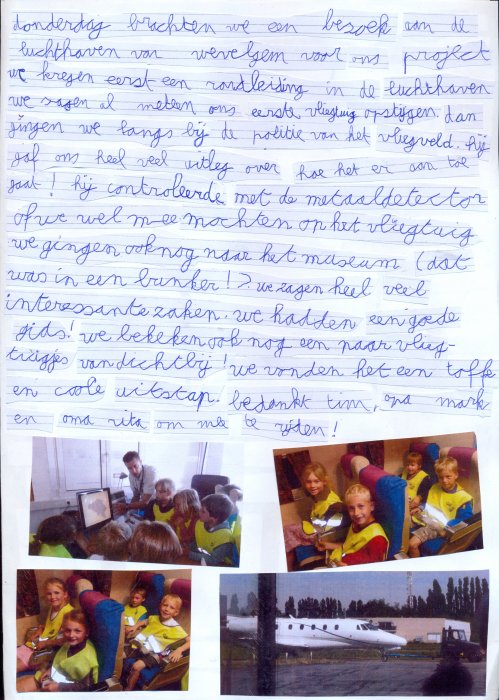 donderdag brachten we een bezoek aan de
luchthaven van wevelgem voor ons project
we kregen eerst een rondleiding in de luchthaven
we zagen al meteen ons eerste vliegtuig opstijgen dan
gingen we langs bij de politie van het vliegveld. hij
gaf ons heel veel uitleg over hoe het er aan toe
gaat! hij controleerde met de metaaldetector
of we wel mee mochten op het vliegtuig
we gingen ook nog naar het museum (dat
was in een bunker!) we zagen heel veel
interessante zaken. we hadden een goede
gids! we bekeken ook nog een paar vlieg-
tuigjes van dichtbij! we vonden het een toffe
en coole uitstap. bedankt tim, opa mark
en oma rita om mee te rijden!